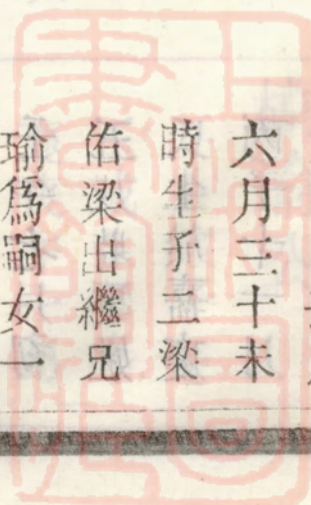 六月三十未
時生子二梁
佑梁出繼兄
瑜爲嗣女一